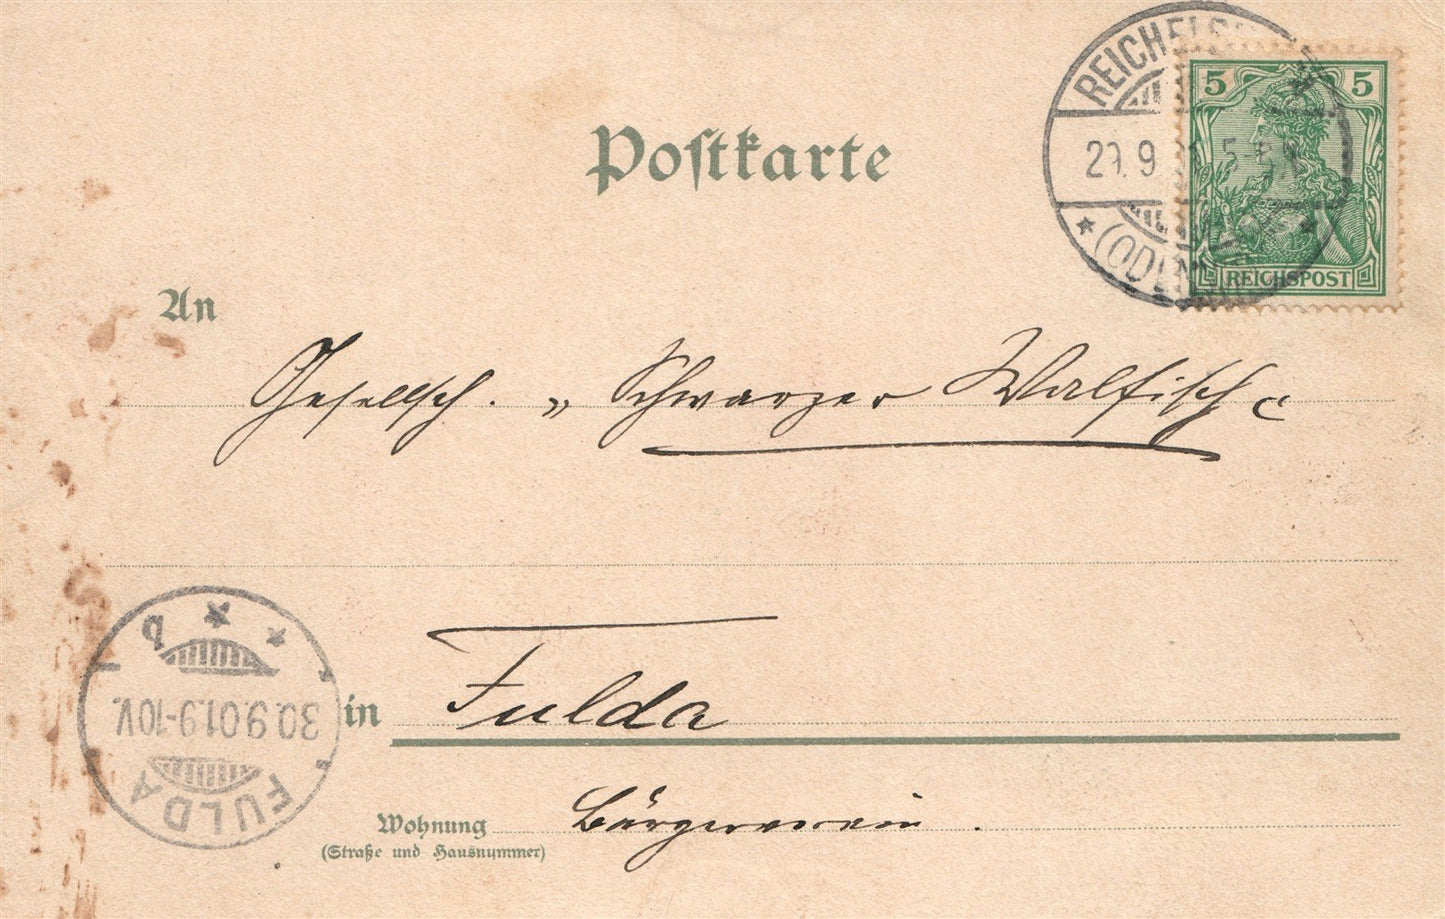 REICHELS
29.9.01. 5-6N
(ODENW
5 5
REICHSPOST
Postkarte
An
Gesellsch. „ Schwarzer Walfisch "
in Fulda
Wohnung Bürgerverein.
(Straße und Hausnummer)
FULDA
30.9.01.9-10V.
b